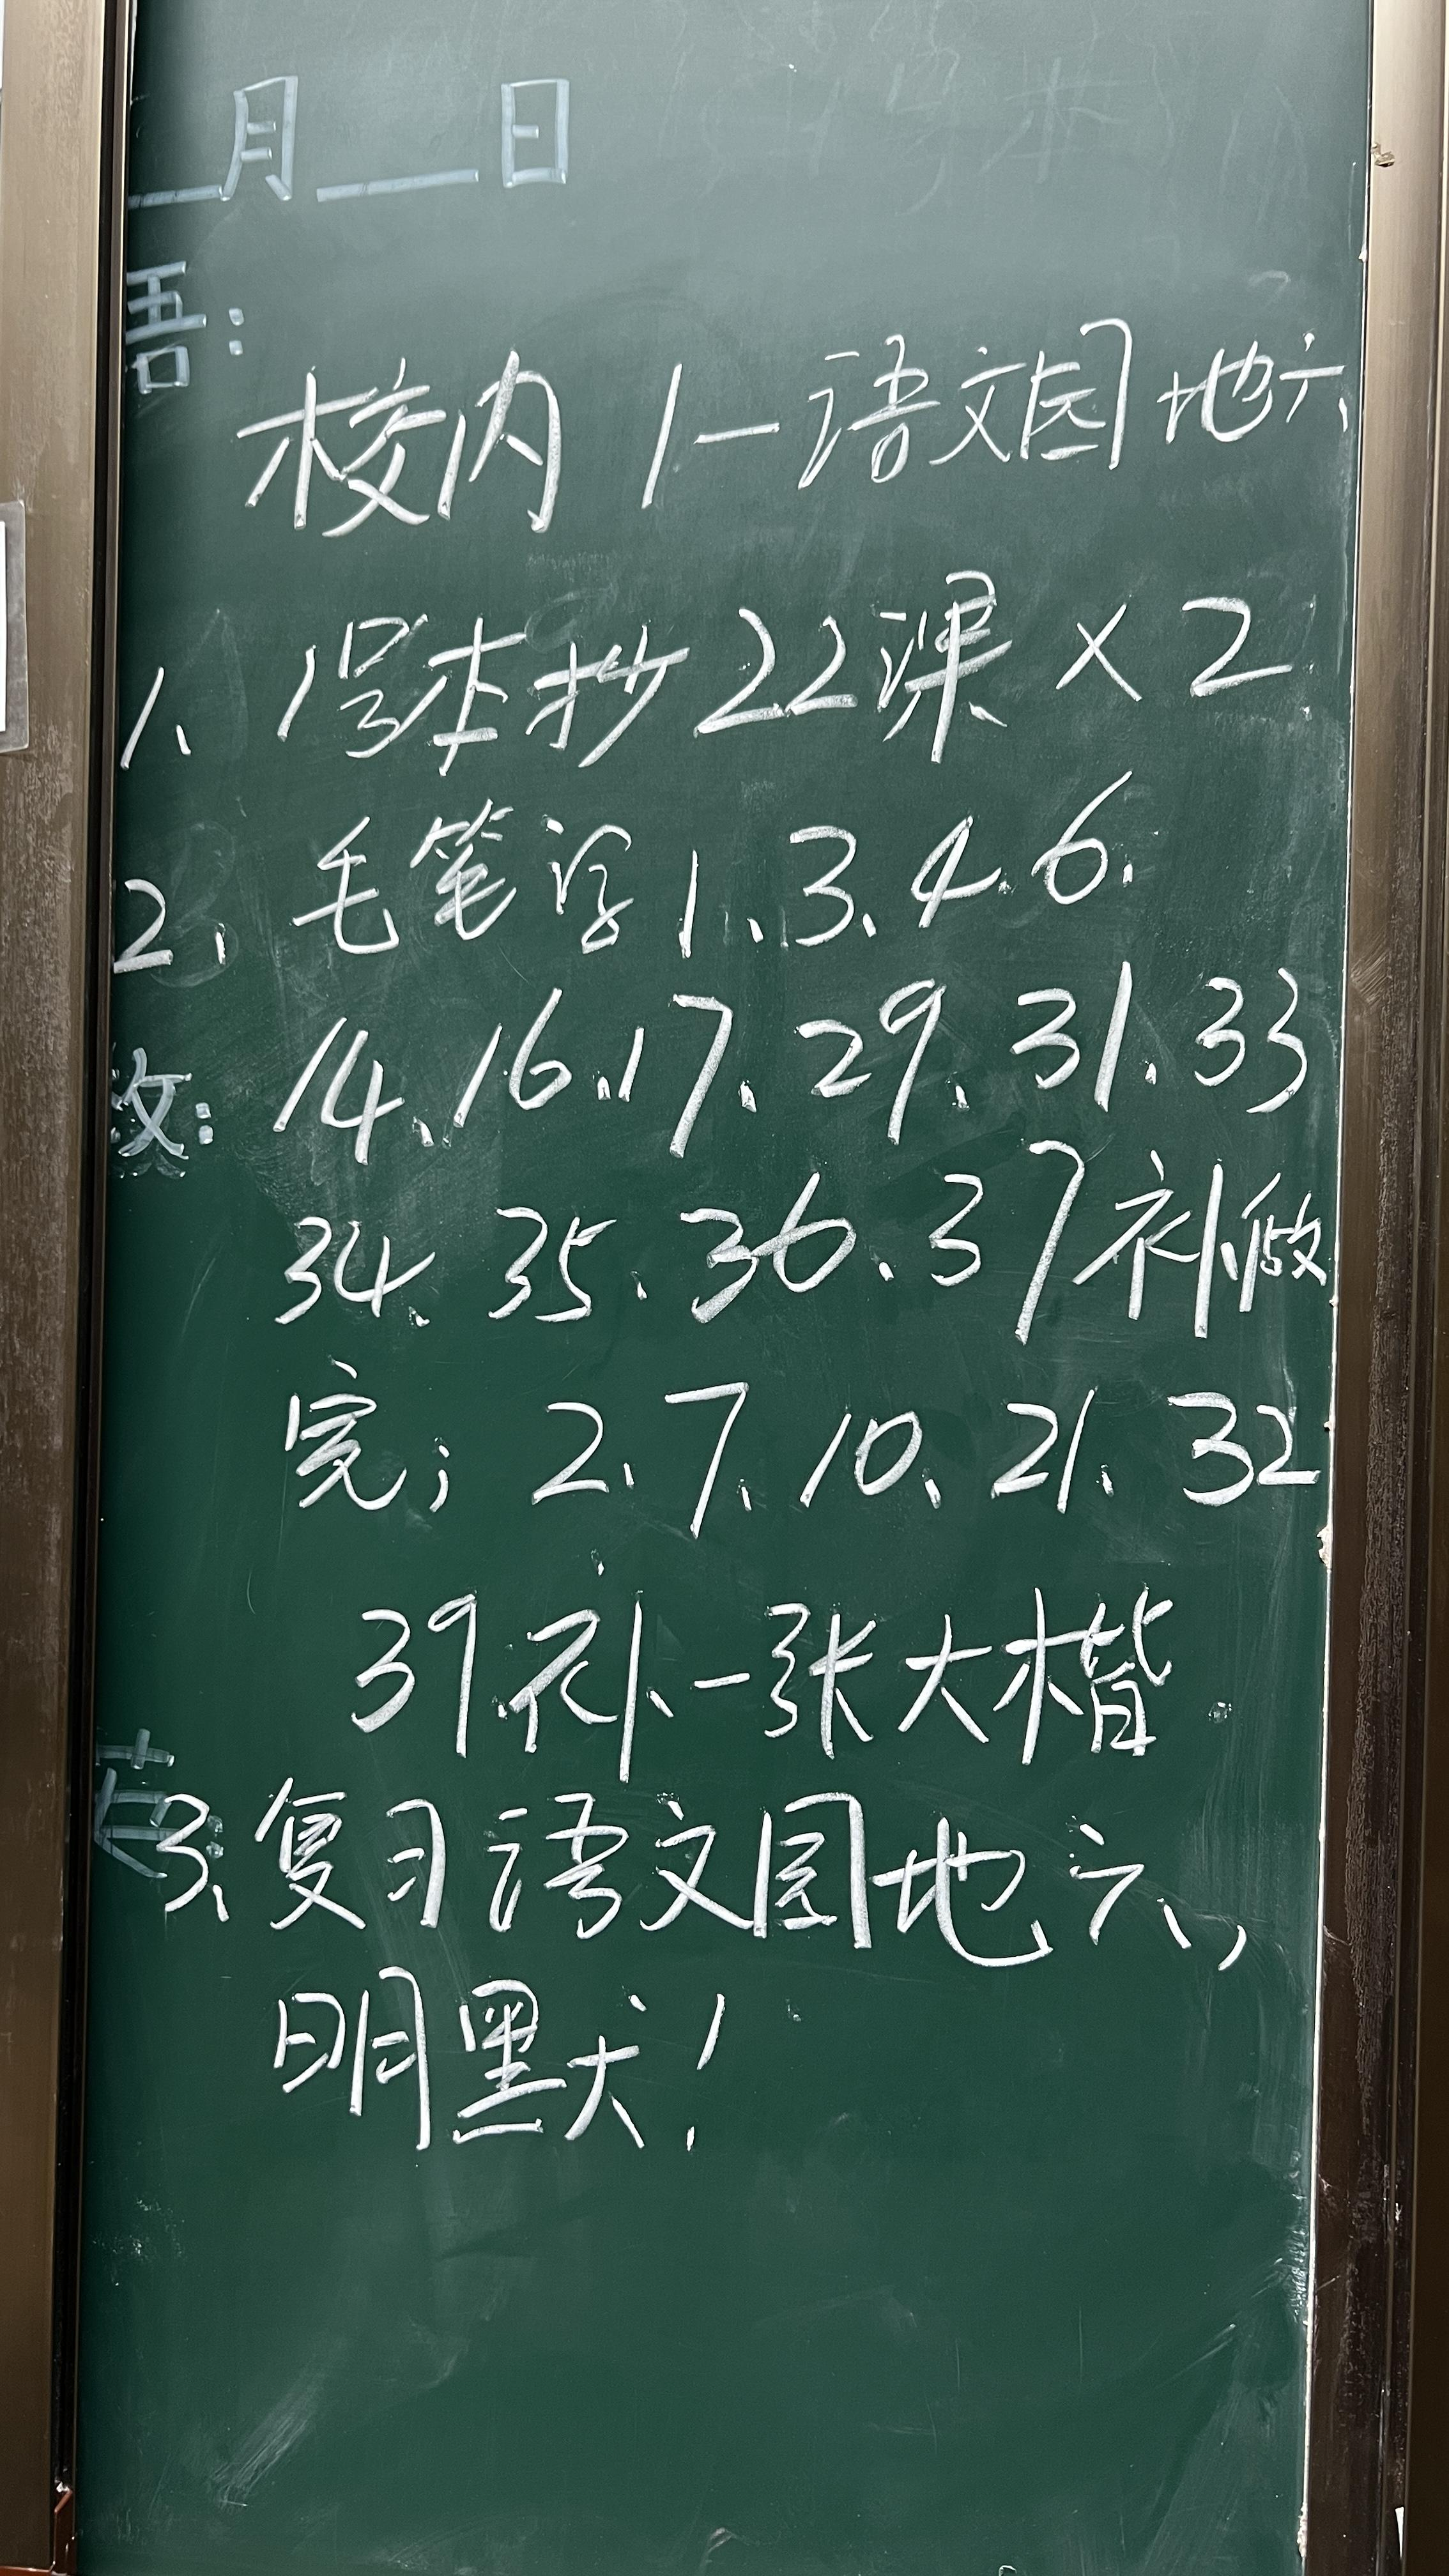 __月__日
语:
校内 1—语文园地六
1、1号本抄22课×2
2、毛笔字1、3、4、6、
14、16、17、29、31、33
数:
34、35、36、37补做
完；2、7、10、21、32
39补一张大楷.
英:
3、复习语文园地六，
明默！